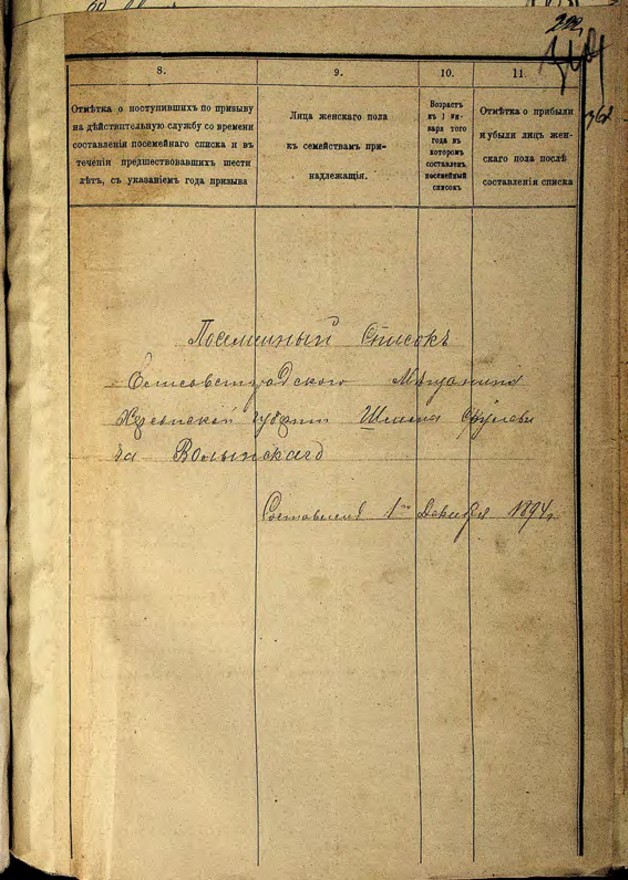 292
362
8.
9.
10.
11.
Отмѣтка о поступившихъ по призыву
на дѣйствительную службу со времени
составленія посемейнаго списка и въ
теченіи предшествовавшихъ шести
лѣтъ, съ указаніемъ года призыва
Лица женскаго пола
къ семействамъ при-
надлежащія.
Возрастъ
къ 1 ян-
варя того
года въ
которомъ
составленъ
посемейный
списокъ
Отмѣтка о прибыли
и убыли лицъ жен-
скаго пола послѣ
составленія списка
Посемейный Списокъ
Елисоветградского Мѣщанина
Херсонской губерніи Шлема Сруловi
ча Волынскаго
Составленъ 1го Декабря 1894г.